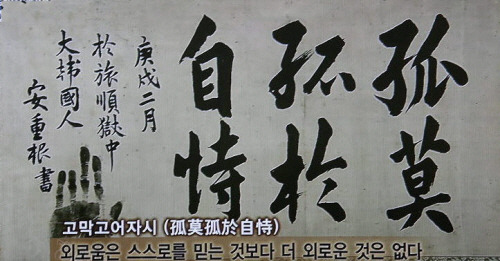 孤莫
孤於
自恃
庚戌二月
於旅順獄中
大韓國人
安重根書
고막고어자시 (孤莫孤於自恃)
외로움은 스스로를 믿는 것보다 더 외로운 것은 없다